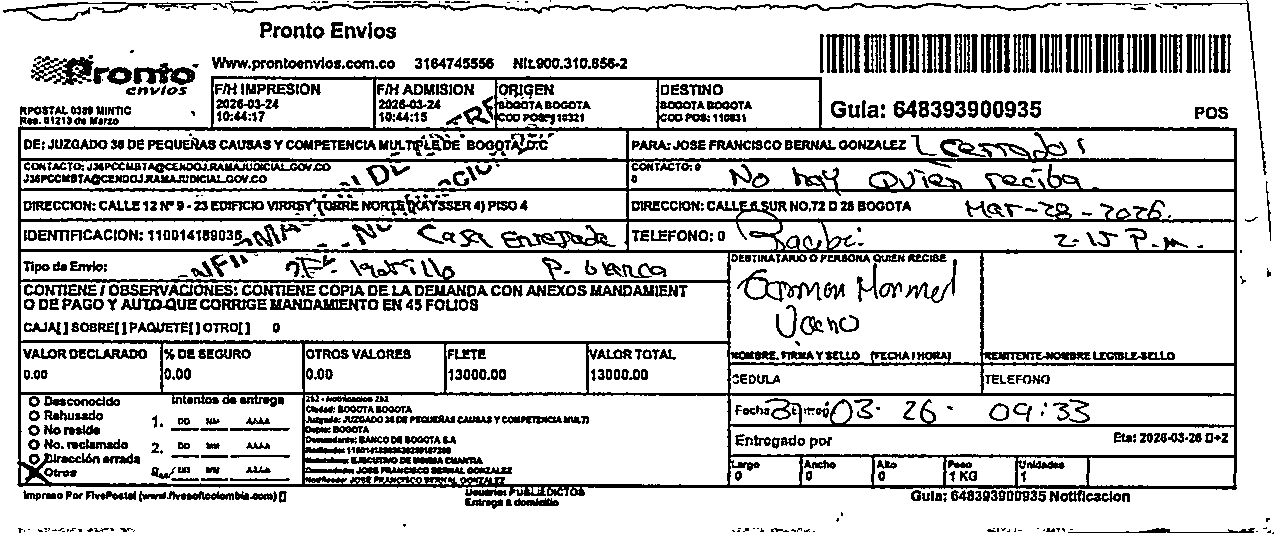 Pronto Envios
Pronto envios
Www.prontoenvios.com.co 3164745556 Nit.900.310.856-2
RPOSTAL 0389 MINTIC
Res. 01213 de Marzo
F/H IMPRESION
2026-03-24
10:44:17
F/H ADMISION
2026-03-24
10:44:15
ORIGEN
BOGOTA BOGOTA
COD POS: 110321
DESTINO
BOGOTA BOGOTA
COD POS: 110831
Guia: 648393900935 POS
DE: JUZGADO 36 DE PEQUEÑAS CAUSAS Y COMPETENCIA MULTIPLE DE BOGOTA D.C
PARA: JOSE FRANCISCO BERNAL GONZALEZ
Cerrado
CONTACTO: J36PCCMBTA@CENDOJ.RAMAJUDICIAL.GOV.CO
J36PCCMBTA@CENDOJ.RAMAJUDICIAL.GOV.CO
CONTACTO: 0
0
No hay quien reciba.
DIRECCION: CALLE 12 Nº 9 - 23 EDIFICIO VIRREY TORRE NORTE (KAYSSER 4) PISO 4
DIRECCION: CALLE 6 SUR NO,72 D 26 BOGOTA
Mar-28-2026
IDENTIFICACION: 110014189036
Casa Enrejada
TELEFONO: 0
Recibi.
2:15 P.m.
Tipo de Envio:
2P. ladrillo P. blanca
CONTIENE / OBSERVACIONES: CONTIENE COPIA DE LA DEMANDA CON ANEXOS MANDAMIENT
O DE PAGO Y AUTO QUE CORRIGE MANDAMIENTO EN 45 FOLIOS
CAJA[ ] SOBRE[ ] PAQUETE[ ] OTRO[ ] 0
DESTINATARIO O PERSONA QUIEN RECIBE
NOMBRE, FIRMA Y SELLO (FECHA / HORA)
REMITENTE-NOMBRE LEGIBLE-SELLO
VALOR DECLARADO
0.00
% DE SEGURO
0.00
OTROS VALORES
0.00
FLETE
13000.00
VALOR TOTAL
13000.00
CEDULA
TELEFONO
Desconocido
Rehusado
No reside
No. reclamado
Dirección errada
Otros
Intentos de entrega
1. DD MM AAAA
2. DD MM AAAA
DD MM AAAA
292 - Notificacion 292
Ciudad: BOGOTA BOGOTA
Juzgado: JUZGADO 36 DE PEQUEÑAS CAUSAS Y COMPETENCIA MULTI
Depto: BOGOTA
Demandante: BANCO DE BOGOTA S.A
Naturaleza: EJECUTIVO DE MINIMA CUANTIA
Demandado: JOSE FRANCISCO BERNAL GONZALEZ
Notificado: JOSE FRANCISCO BERNAL GONZALEZ
Fecha 03-26- 09:33
Entregado por
Eta: 2026-03-26 D+2
Largo
0
Ancho
0
Alto
0
Peso
1 KG
Unidades
1
Impreso Por FivePostal (www.fivesoftcolombia.com) []
Usuario: PUBLIEDICTOS
Entrega a domicilio
Guia: 648393900935 Notificacion